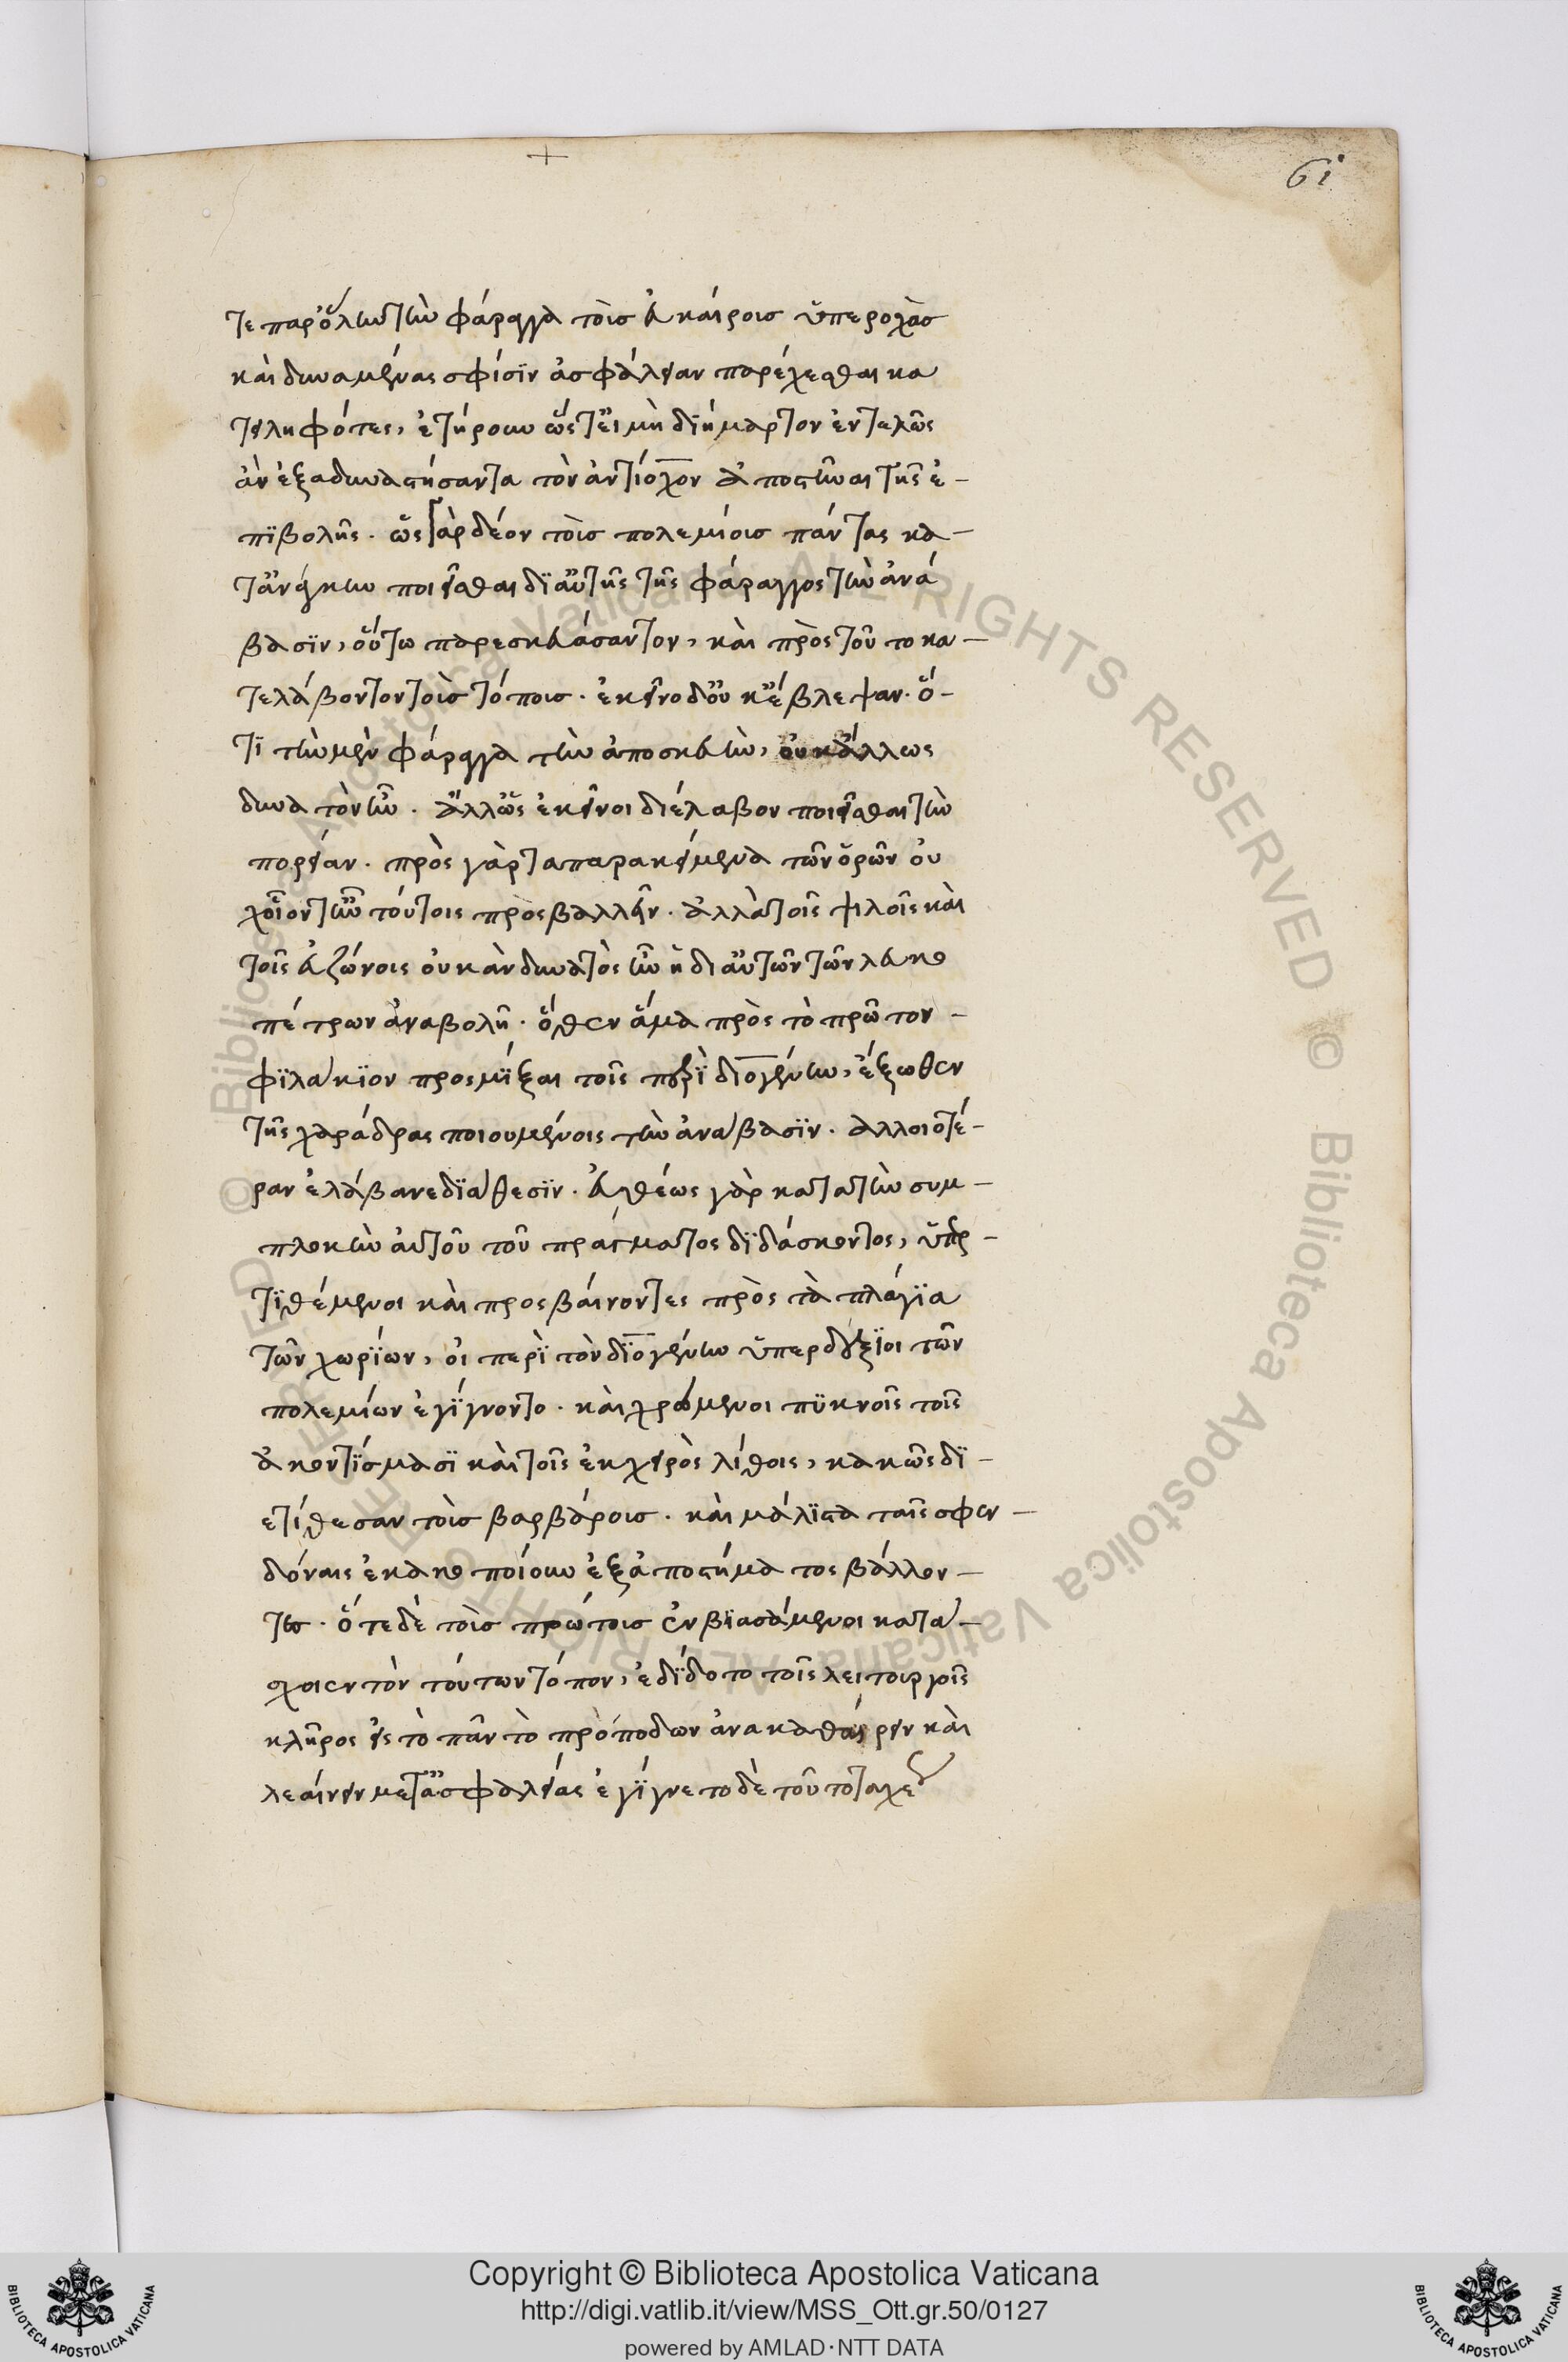 61
τε παρ' ὅλην τὴν φάραγγα τοῖσ εὐκαίροισ ὑπεροχὰσ
καὶ δυναμένας σφίσϊν ἀσφάλειαν παρέχεσθαι κα
τειληφότες, ἐτήρουν ὥς τε εἰ μὴ διήμαρτον ἐντελῶς
ἀν ἐξαδυνατήσαντα τὸν ἀντίοχον ἀποστῆναι τῆς ἐ-
πϊβολῆς. ὥς γὰρ δέον τοῖσ πολεμίοισ πάντας κα-
τ' ἀνάγκην ποιεῖσθαι δϊ αὐτῆς τῆς φάραγγος τὴν ἀνά
βασϊν, οὕτω παρεσκευάσαντον, καὶ πρὸς τοῦτο κα-
τελάβοντον τοὶσ τόποισ. ἐκεῖνο δ' οὐκ ἔβλεψαν. ὅ-
τϊ τὴν μὲν φάραγγα τὴν ἀποσκευὴν, οὐκ ἄλλως
δυνατὸν ἦν. ἄλλ' ὥς ἐκεῖνοι διέλαβον ποιεῖσθαι τὴν
πορείαν. πρὸς γὰρ τα παρακείμενα τῶν ὄρῶν οὐ
χ οἷον τ' ἦν τούτοις πρὸςβαλλεῖν. ἀλλὰ τοῖς ψιλοῖς καὶ
τοῖς εὐζώνοις οὐκ ἀν δυνατὸς ἦν ἡ δι αὐτῶν τῶν λευκο
πέτρων ἀναβολῆ. ὅθεν ἅμα πρὸς τὸ πρῶτον-
φϊλάκϊον προςμῖξαι τοῖς περὶ διογένην, ἔξωθεν
τῆς χαράδρας ποιουμένοις τὴν ἀνάβασϊν. ἀλλοιοτέ-
ραν ἐλάβανε δϊάθεσϊν. εὐθέως γὰρ κατὰ τὴν συμ-
πλοκὴν αὐτοῦ τοῦ πράγματος δϊδάσκοντος, ὑπερ-
τϊθέμενοι καὶ προςβαίνοντες πρὸς τὰ πλάγϊα
τῶν χωρϊων, οἱ περὶ τὸν δϊογένην ὑπερδέξϊοι τῶν
πολεμίων ἐγίγνοντο. καὶ χρώμενοι πϋκνοῖς τοῖς
ἀκοντϊσμασϊ καὶ τοῖς ἐκ χειρὸς λίθοις, κακῶς δϊ-
ετίθεσαν τοὶσ βαρβάροισ. καὶ μάλϊστα ταῖς σφεν-
δόναις ἐκακοποίουν ἐξ ἀποστήματος βάλλον-
τες. ὅτε δὲ τοὶσ πρώτοισ ἐνβϊασάμενοι κατά-
σχοιεν τὸν τούτων τόπον, ἐδίδοτο τοῖς λειτουργοῖς
κλῆρος εἰς τὸ πᾶν τὸ πρὸ ποδων ἀνακαθάιρειν καὶ
λεαίνειν μετ' ἀσφαλείας ἐγίγνετο δὲ τοῦτο ταχε
Copyright © Biblioteca Apostolica Vaticana
http://digi.vatlib.it/view/MSS_Ott.gr.50/0127
powered by AMLAD·NTT DATA